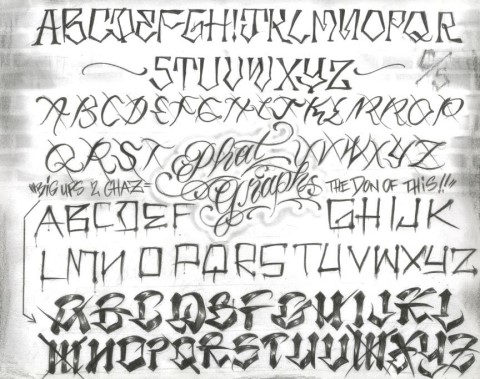 ABCDEFGHIJKLMNOPQR
STUVWXYZ
ABCDEFGHIJKLMNOP
QRST Phat UVWXYZ
"BIG UPS 2 GHAZ= Graphs THE DON OF THIS!!"
ABCDEF GHIJK
LMNOPQRSTUVWXYZ
ABCDEFGHIJKL
MNOPQRSTUVWXYZ